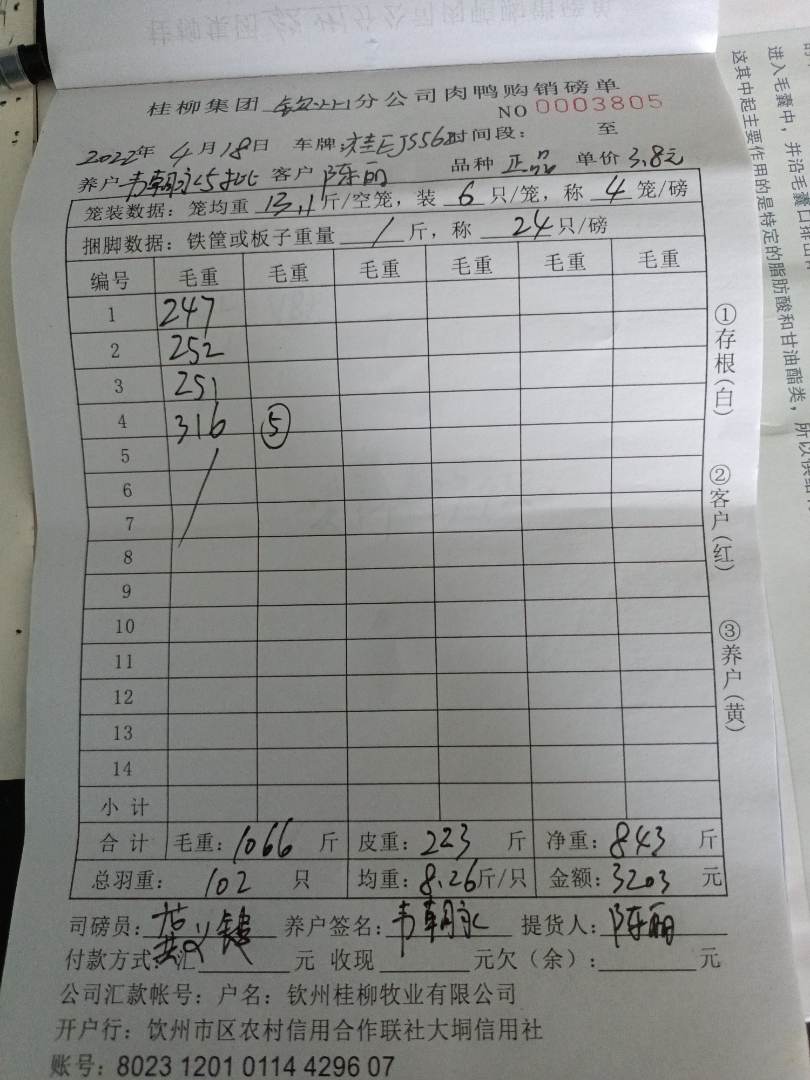 桂柳集团 钦州 分公司肉鸭购销磅单
NO 0003805
2022年 4月18日 车牌:桂EJS562 时间段: 至
养户 韦朝永 客户 陈丽 品种 正品 单价 3.8元
笼装数据:笼均重 13.1 斤/空笼,装 6 只/笼,称 4 笼/磅
捆脚数据:铁筐或板子重量 / 斤,称 24 只/磅
编号 毛重 毛重 毛重 毛重 毛重 毛重
1 247
2 252
3 251
4 316 ⑤
5
6
7
8
9
10
11
12
13
14
小计
合计 毛重:1066 斤 皮重:223 斤 净重:843 斤
总羽重: 102 只 均重:8.26斤/只 金额:3203 元
司磅员: 养户签名:韦朝永 提货人:陈丽
付款方式:汇 元 收现 元欠(余): 元
公司汇款帐号:户名:钦州桂柳牧业有限公司
开户行:饮州市区农村信用合作联社大垌信用社
账号:8023 1201 0114 4296 07
①存根(白)
②客户(红)
③养户(黄)
进入毛囊中,并沿毛囊口排出
这其中起主要作用的是特定的脂肪酸和甘油酯类,所以